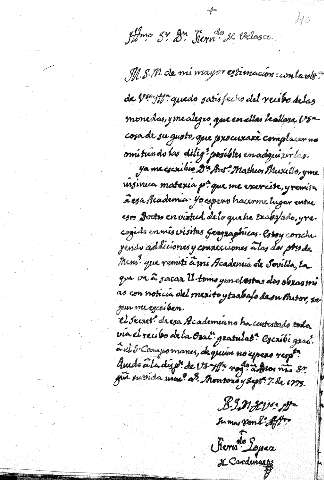 40
+
Illmo. Sr. Dn. Fern.do de Velasco.
M.S.M. de mi mayor estimacion: con la
de Vsa. Illa. quedo satisfecho del recibo de las
monedas, y me alegro, que en ellas se allase Vs
cosa de su gusto, que procuraré complacer no
omitiendo las dilig.s posibles en adquirirlas.
ya me escribió Dn. Anto. Matheos Murillo, y me
insinua materia pa. que me exercite, y remita
â esa Academia. Yo espero hacerme lugar entre
esos Doctos en virtud de lo que he trabajado, y re-
cogido en mis visitas Geographicas. Estoy conclu-
yendo addiciones y correcciones â las dos
que remití â mi Academia de Sevilla, la
que va â sacar II tomo y en el estas dos obras mi-
as con noticia del merito y trabajo de su Autor, se-
gun me escriben.
el Secreto. de esa Academia no ha contestado toda
via el recibo de la Orac. gratulato. Escribí
â el Sr. Campomanes, de quien no espero
Quedo â la disp.n de Vs. Illa. â Dios
su vida m.s a.s Montoro y Septe. 7. de 1775.
B. L. M. de Vsa. Illa.
su mas
Fern.do Lopez
de Cardenas